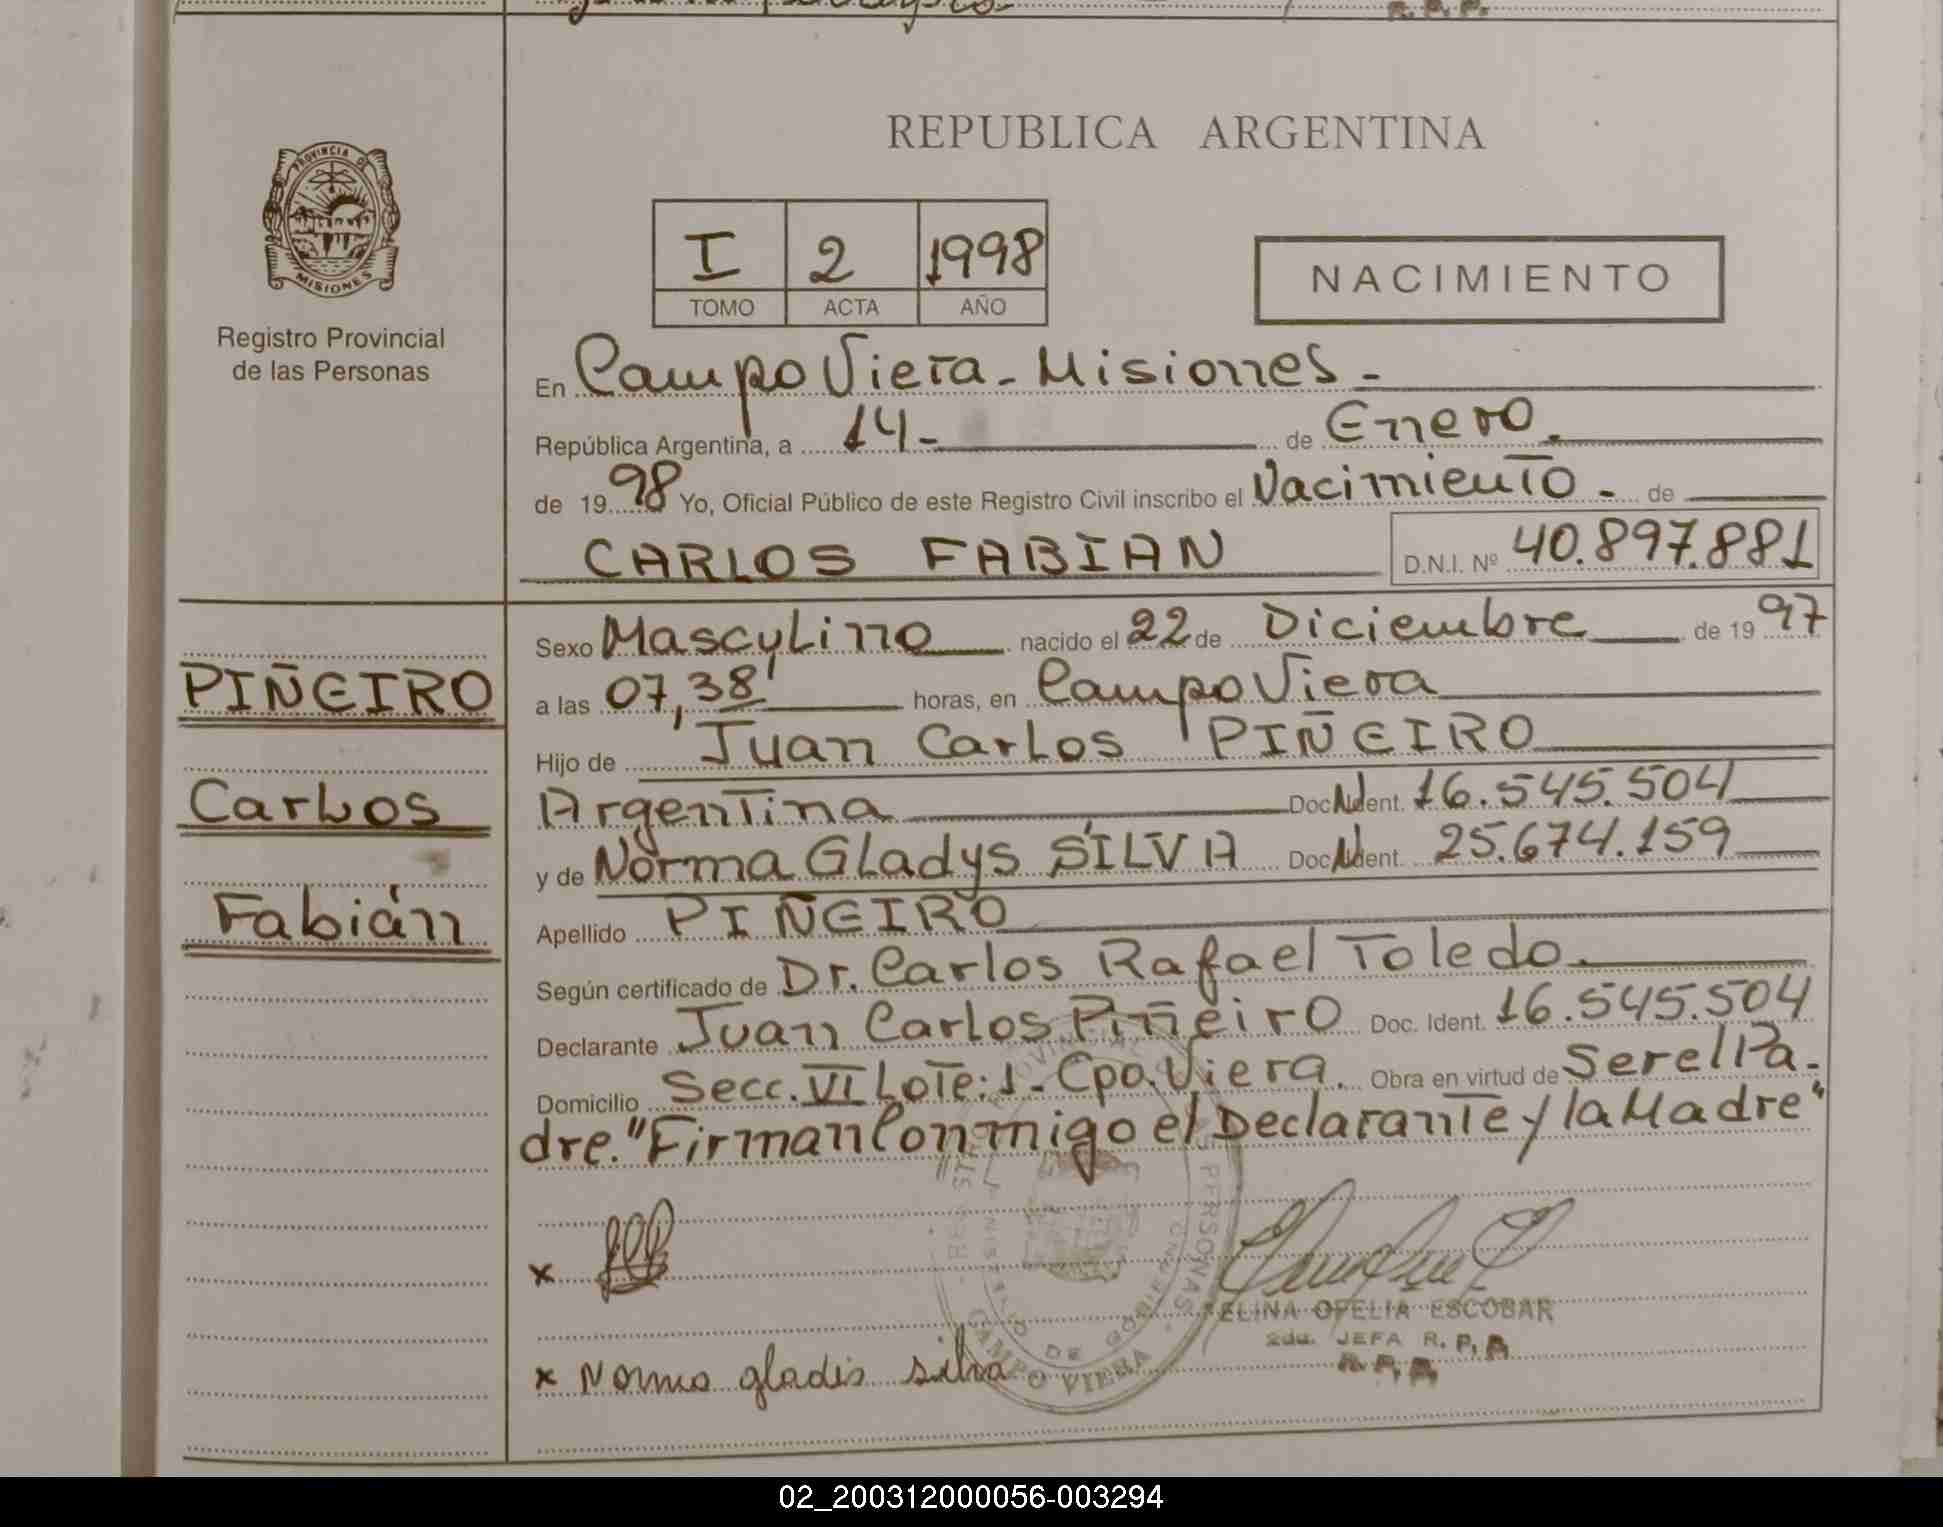 REPUBLICA ARGENTINA
PROVINCIA DE
MISIONES
Registro Provincial
de las Personas
I 2 1998
TOMO ACTA AÑO
NACIMIENTO
En Campo Viera - Misiones -
República Argentina, a 14 - de Enero.
de 19 98 Yo, Oficial Público de este Registro Civil inscribo el Nacimiento - de
CARLOS FABIAN D.N.I. Nº 40.897.881
PIÑEIRO
Carlos
Fabián
Sexo Masculino nacido el 22 de Diciembre de 19 97
a las 07,38' horas, en Campo Viera
Hijo de Juan Carlos PIÑEIRO
Argentina Doc. Ident. 16.545.504
y de Norma Gladys SILVA Doc. Ident. 25.674.159
Apellido PIÑEIRO
Según certificado de Dr. Carlos Rafael Toledo.
Declarante Juan Carlos Piñeiro Doc. Ident. 16.545.504
Domicilio Secc. VI Lote: 1 - Cpo. Viera. Obra en virtud de Ser el Pa-
dre. "Firman Conmigo el Declarante y la Madre"
x
ELINA OFELIA ESCOBAR
2da. JEFA R. P. P.
R. P. P.
x Norma gladis silva
CAMPO VIERA
02_200312000056-003294